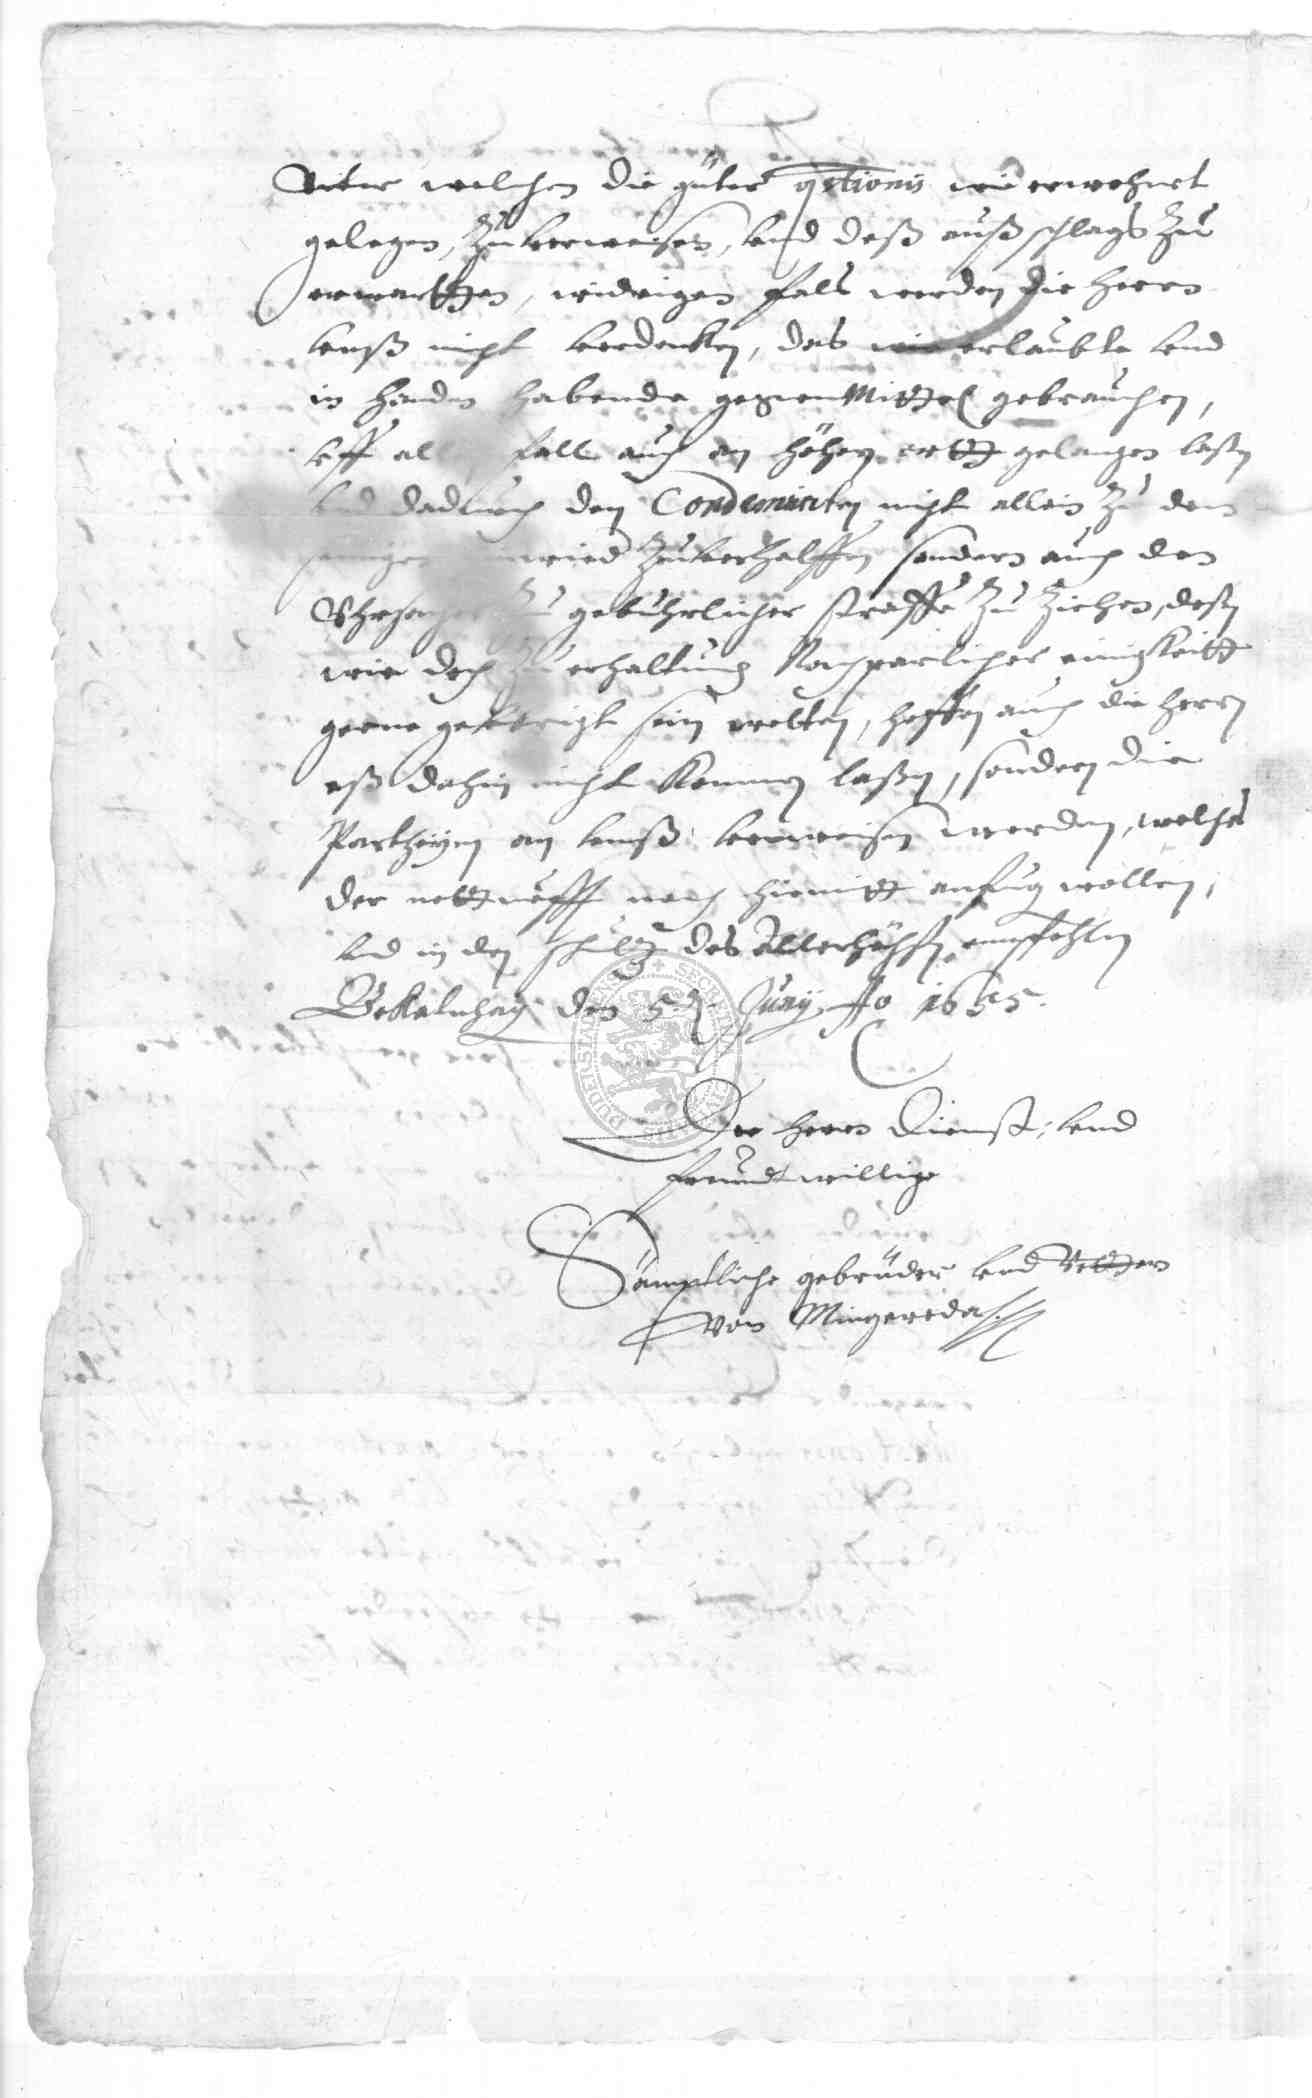 Unter welchen die güter qstionis wie erwehnet
gelegen, zuverweisen, und deß außschlags zu
erwartten, widrigen fals werden die Herrn
unß nicht verdencken, das wir erlaubte und
in handen habende gegenMittel gebrauchen,
uff all fall auch an höhern ortt gelangen laßen
und dadurch den Condemnirten nicht allein zu dem
seinigen wied zuverhelffen sondern auch den
Uhrsacher zu gebührlicher straffe zu ziehen, deßen
wir doch zu erhaltung Nachparlicher einigkeitt
gerne geübrigt sein wolten, hoffen auch die Herrn
eß dahin nicht kommen laßen, sondern die
Partheyen an unß verweisen werden, welches
der notturfft nach hiermitt anfügen wollen,
und in den schutz des Allerhöchsten empfohlen
den 5.ten Juny Ao 1655.
Der Herrn Dienst: und
freundtwillige
Sämptliche gebrüder und Vettern
von Mingeroda
DUDERSTADENSIS + SECRETUM